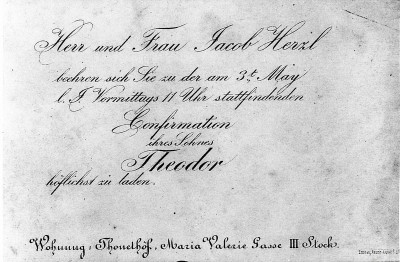 Herr und Frau Jacob Herzl
beehren sich Sie zu der am 3t. May
l. J. Vormittags 11 Uhr stattfindenden
Confirmation
ihres Sohnes
Theodor
höflichst zu laden.
Wohnung: Thonethof, Maria Valerie Gasse III Stock.